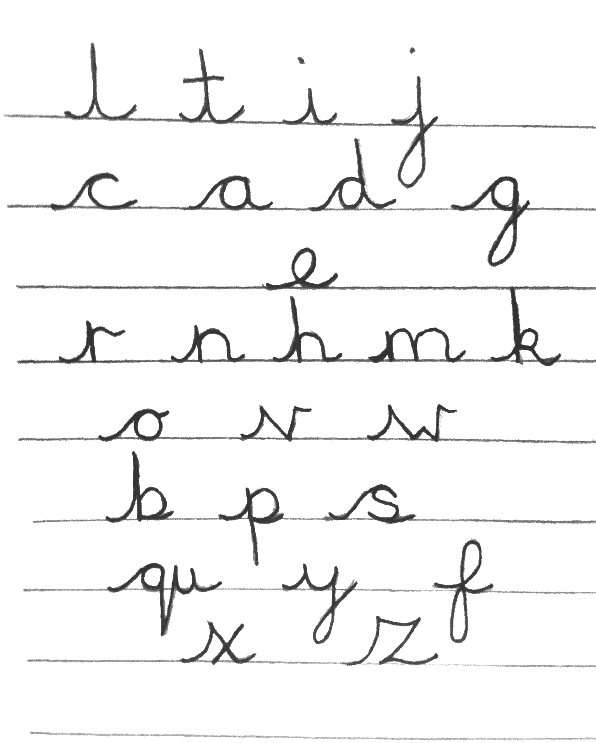 l t i j
c a d g
e
r n h m k
o v w
b p s
qu y f
x z